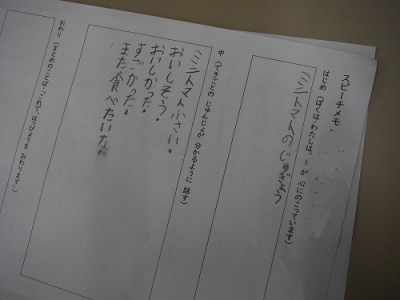 スピーチメモ
はじめ(ぼくは(わたしは)、~が 心にのこっています)
ミニトマトのじゅぎょう
中(できごとの じゅんじょが 分かるように 話す)
ミニトマト小さい。
おいしそう。
おいしかった。
すごかった。
また食べたいな。
おわり(まとめのことば・これで、はっぴょうを おわります)